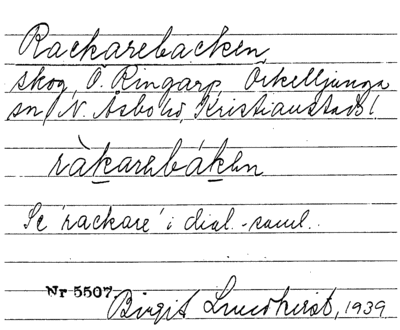 Rackarebacken
skog, Ö. Ringarp, Örkelljunga
sn, N. Åsbo hd, Kristianstads l
ràkarebáken
Se 'rackare' i dial.-saml.
Nr 5507
Birgit Lundkvist, 1939